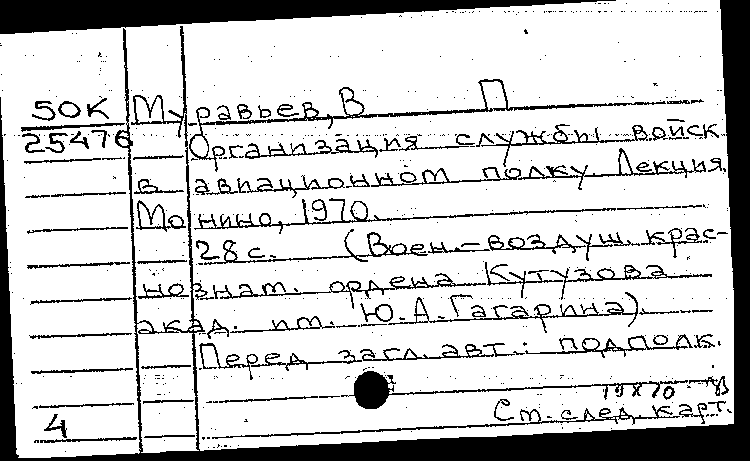 50К Муравьев, В П
25476 Организация службы войск
в авиационном полку. Лекция.
Монино, 1970.
28 с. (Воен.-воздуш. крас-
нознам. ордена Кутузова
акад. им. Ю.А.Гагарина).
Перед загл. авт.: подполк.
19 X 70
4 См. след. карт.